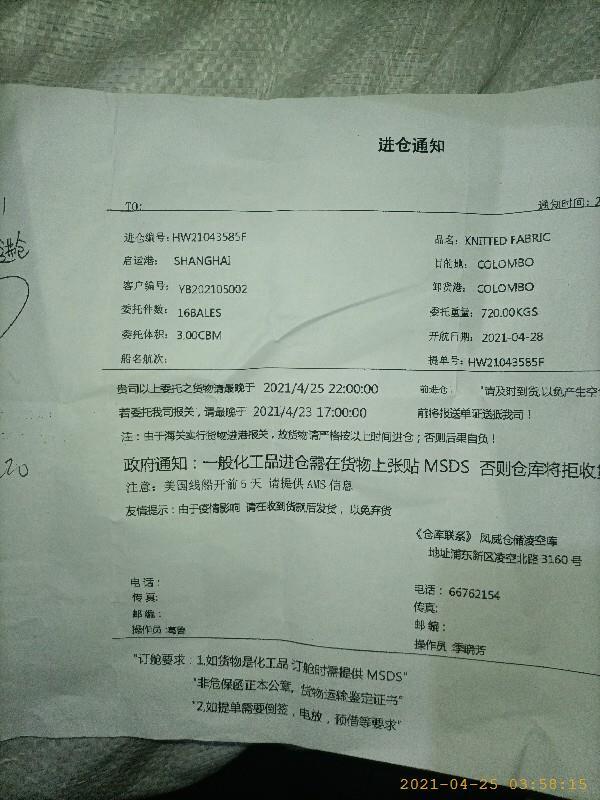 进仓通知
TO: 通知时间: 2
进仓编号: HW21043585F 品名: KNITTED FABRIC
启运港: SHANGHAI 目的地: COLOMBO
客户编号: YB202105002 卸货港: COLOMBO
委托件数: 16BALES 委托重量: 720.00KGS
委托体积: 3.00CBM 开航日期: 2021-04-28
船名航次: 提单号: HW21043585F
贵司以上委托之货物请最晚于 2021/4/25 22:00:00 前进仓: "请及时到货,以免产生空
若委托我司报关, 请最晚于 2021/4/23 17:00:00 前将报送单证送抵我司!
注: 由于海关实行货物进港报关, 故货物请严格按以上时间进仓; 否则后果自负!
政府通知: 一般化工品进仓需在货物上张贴 MSDS 否则仓库将拒收货
注意: 美国线船开前5天 请提供AMS信息
友情提示: 由于疫情影响 请在收到货款后发货, 以免弃货
《仓库联系》 风威仓储凌空库
地址浦东新区凌空北路3160号
电话: 电话: 66762154
传真: 传真:
邮编: 邮编:
操作员 操作员 季晓芳
"订舱要求: 1.如货物是化工品 订舱时需提供 MSDS"
"非危保函正本公章, 货物运输鉴定证书"
"2.如提单需要倒签, 电放, 预借等要求"
进仓
20
2021-04-25 03:58:15